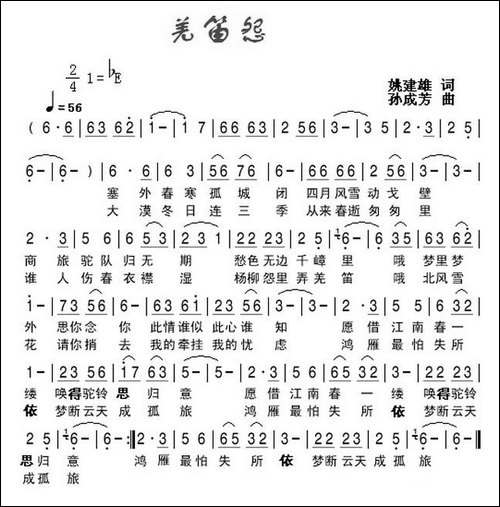 羌笛怨
2/4 1=♭E
♩=56
姚建雄 词
孙成芳 曲
(6·6|63 62|1-|1 7|66 63|2 56|3-|3-|3·2|2 5|
6-|6-)|6·6|3 56 76|66 56|3·2|3·6|
塞 外 春 寒 孤 城 闭 四月风雪 动 戈 壁
大 漠 冬 日 连 三 季 从来春逝 匆 匆 里
2·3|5·6|6 53|2 23 1|22 23|5·6|2 5|6-|6 35|63 62|
商 旅 驼 队 归 无 期 愁色无边 千 嶂 里 哦 梦里梦
谁 人 伤 春 衣 襟 湿 杨柳怨里 弄 羌 笛 哦 北风雪
1-|73 56|6·3|22 23|56 32|3-|2·3|5·6|65 32|
外 思你念 你 此情谁似 此心谁 知 愿 借 江 南 春 一
花 请你捎 去 我的牵挂 我的忧 虑 鸿 雁 最 怕 失 所
1-|22 23|56 17 63|5-|5-|2·3|5·6|65 32|1-|22 23|
缕 唤得驼铃 思 归 意 愿 借 江 南 春 一 缕 唤得驼铃
依 梦断云天 成 孤 旅 鸿 雁 最 怕 失 所 依 梦断云天
2 5|6-|6-:|2·3|5·6|65 32|3-|22 23|2 5|6-|6-|
思 归 意 鸿 雁 最 怕 失 所 依 梦断云天 成 孤 旅
成 孤 旅